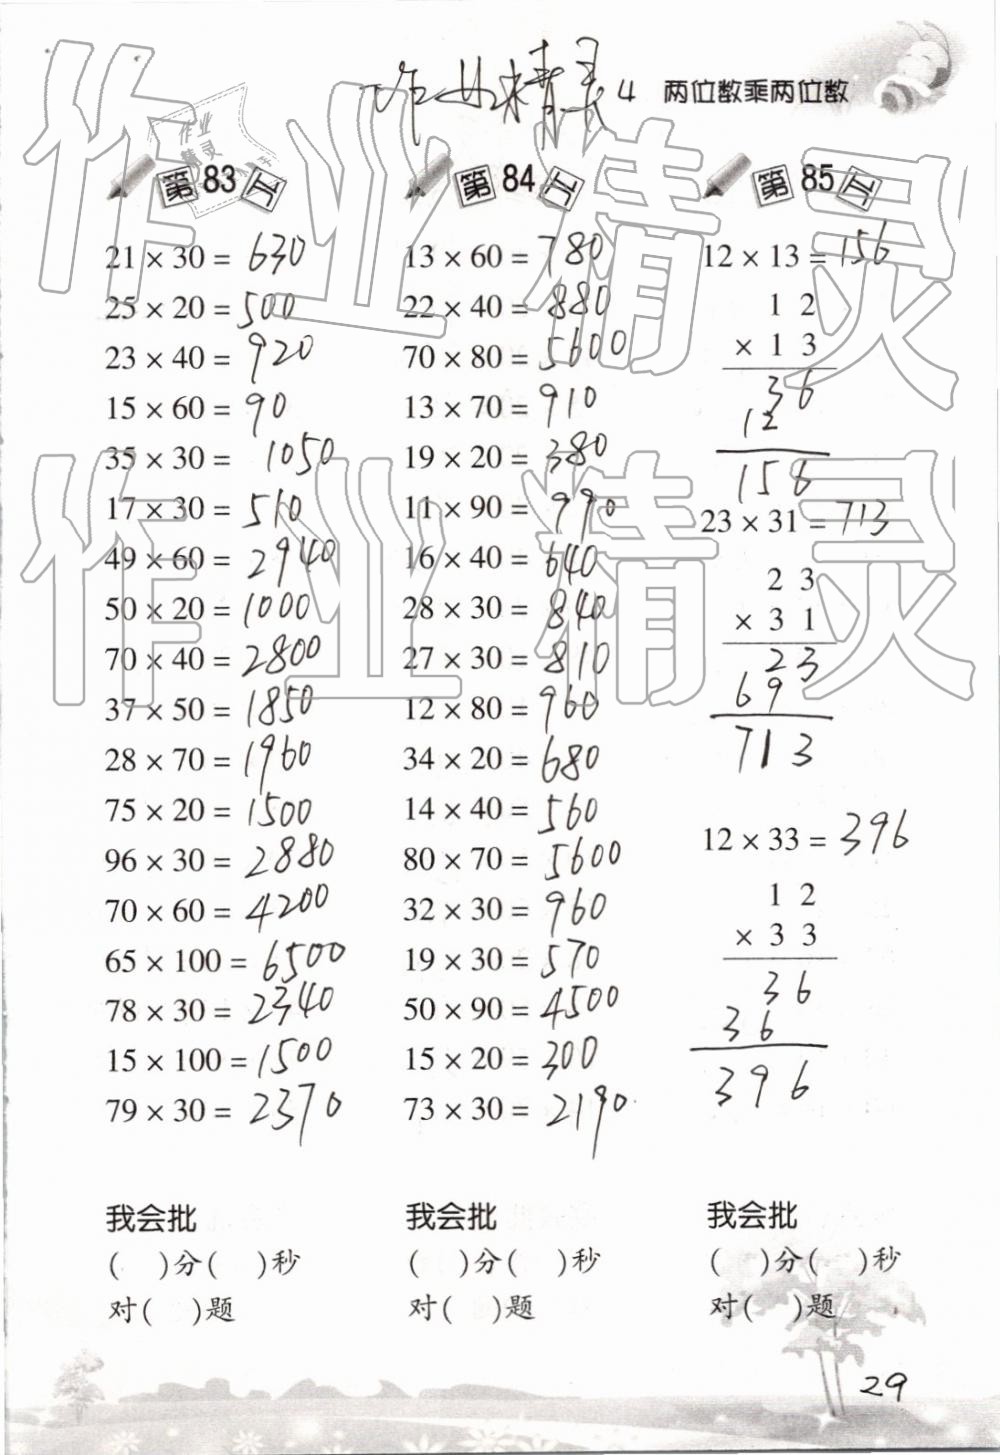 作业精灵 4 两位数乘两位数
作业
精灵
第83天
21 × 30 = 630
25 × 20 = 500
23 × 40 = 920
15 × 60 = 90
35 × 30 = 1050
17 × 30 = 510
49 × 60 = 2940
50 × 20 = 1000
70 × 40 = 2800
37 × 50 = 1850
28 × 70 = 1960
75 × 20 = 1500
96 × 30 = 2880
70 × 60 = 4200
65 × 100 = 6500
78 × 30 = 2340
15 × 100 = 1500
79 × 30 = 2370
我会批
( )分( )秒
对( )题
第84天
13 × 60 = 780
22 × 40 = 880
70 × 80 = 5600
13 × 70 = 910
19 × 20 = 380
11 × 90 = 990
16 × 40 = 640
28 × 30 = 840
27 × 30 = 810
12 × 80 = 960
34 × 20 = 680
14 × 40 = 560
80 × 70 = 5600
32 × 30 = 960
19 × 30 = 570
50 × 90 = 4500
15 × 20 = 300
73 × 30 = 2190
我会批
( )分( )秒
对( )题
第85天
12 × 13 = 156
1 2
× 1 3
36
12
156
23 × 31 = 713
2 3
× 3 1
23
69
713
12 × 33 = 396
1 2
× 3 3
36
36
396
我会批
( )分( )秒
对( )题
29
作业精灵
作业精灵